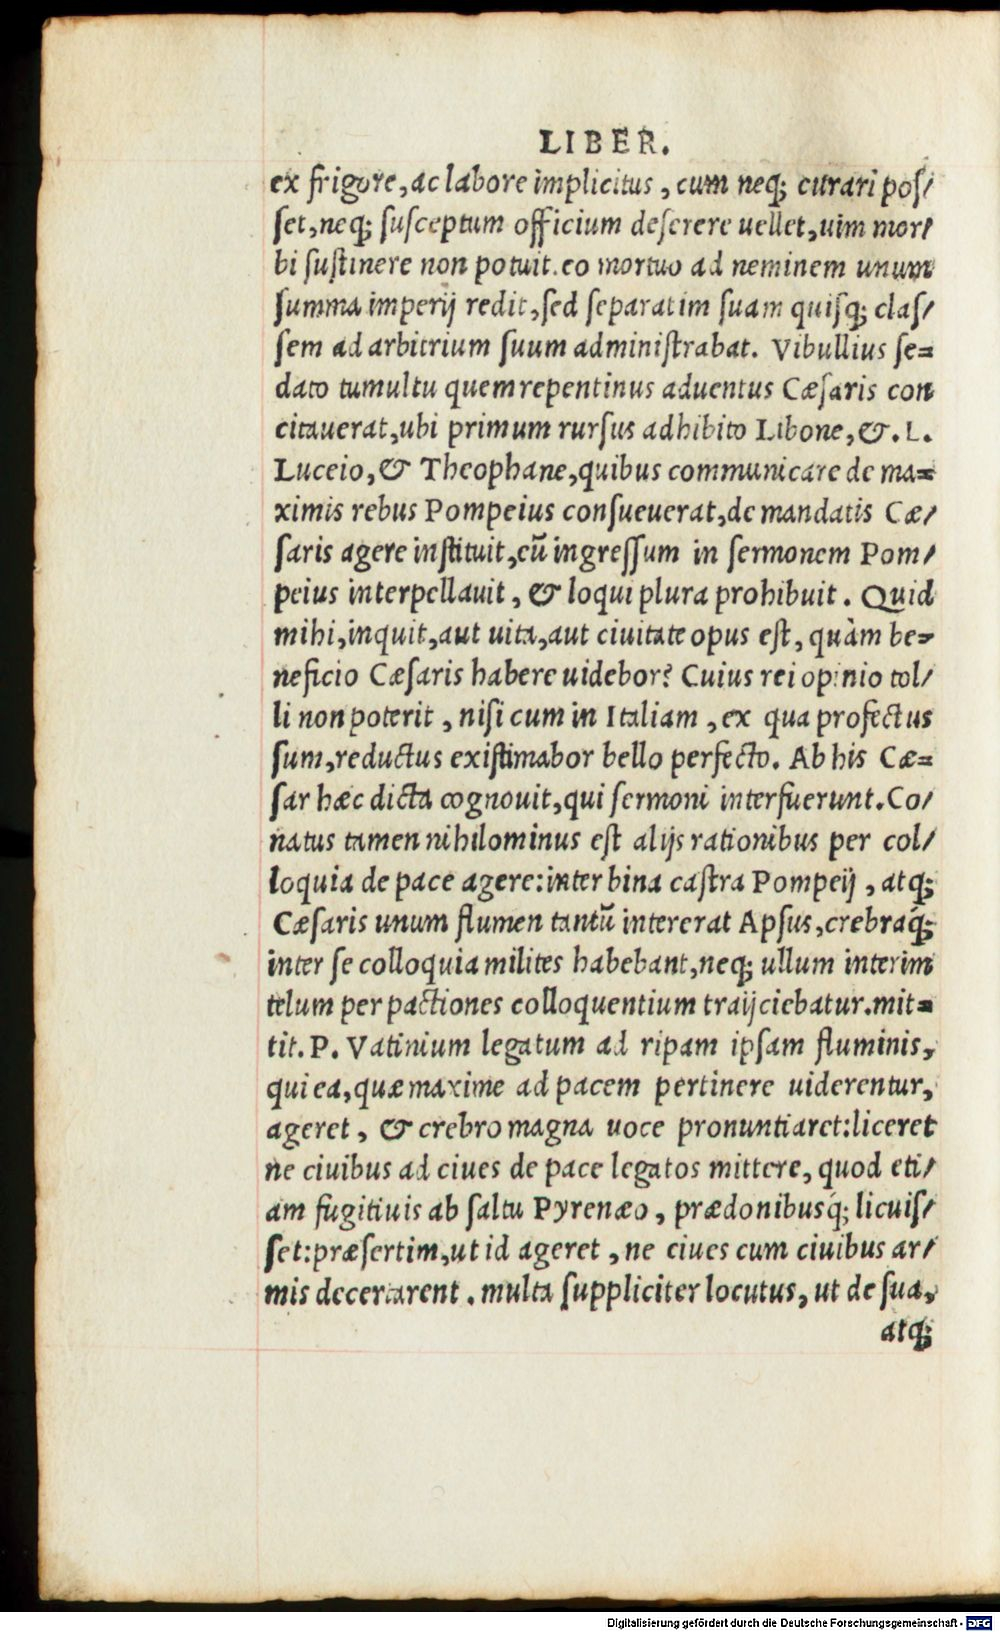 LIBER.
ex frigore, ac labore implicitus, cum neq; curari pos/
set, neq; susceptum officium deserere uellet, uim mor/
bi sustinere non potuit. eo mortuo ad neminem unum
summa imperij redit, sed separatim suam quisq; clas/
sem ad arbitrium suum administrabat. Vibullius se=
dato tumultu quem repentinus aduentus Cæsaris con
citauerat, ubi primum rursus adhibito Libone, &. L.
Luceio, & Theophane, quibus communicare de ma=
ximis rebus Pompeius consueuerat, de mandatis Cæ/
saris agere instituit, cū ingressum in sermonem Pom/
peius interpellauit, & loqui plura prohibuit. Quid
mihi, inquit, aut uita, aut ciuitate opus est, quàm be=
neficio Cæsaris habere uidebor? Cuius rei opinio tol/
li non poterit, nisi cum in Italiam, ex qua profectus
sum, reductus existimabor bello perfecto. Ab his Cæ=
sar hæc dicta cognouit, qui sermoni interfuerunt. Co/
natus tamen nihilominus est alijs rationibus per col/
loquia de pace agere: inter bina castra Pompeij, atq;
Cæsaris unum flumen tantū intererat Apsus, crebraq́;
inter se colloquia milites habebant, neq; ullum interim
telum per pactiones colloquentium traijciebatur. mit=
tit. P. Vatinium legatum ad ripam ipsam fluminis,
qui ea, quæ maxime ad pacem pertinere uiderentur,
ageret, & crebro magna uoce pronuntiaret: liceret
ne ciuibus ad ciues de pace legatos mittere, quod eti/
am fugitiuis ab saltu Pyrenæo, prædonibusq́; licuis/
set: præsertim, ut id ageret, ne ciues cum ciuibus ar/
mis decertarent. multa suppliciter locutus, ut de sua,
atq;
Digitalisierung gefördert durch die Deutsche Forschungsgemeinschaft - DFG